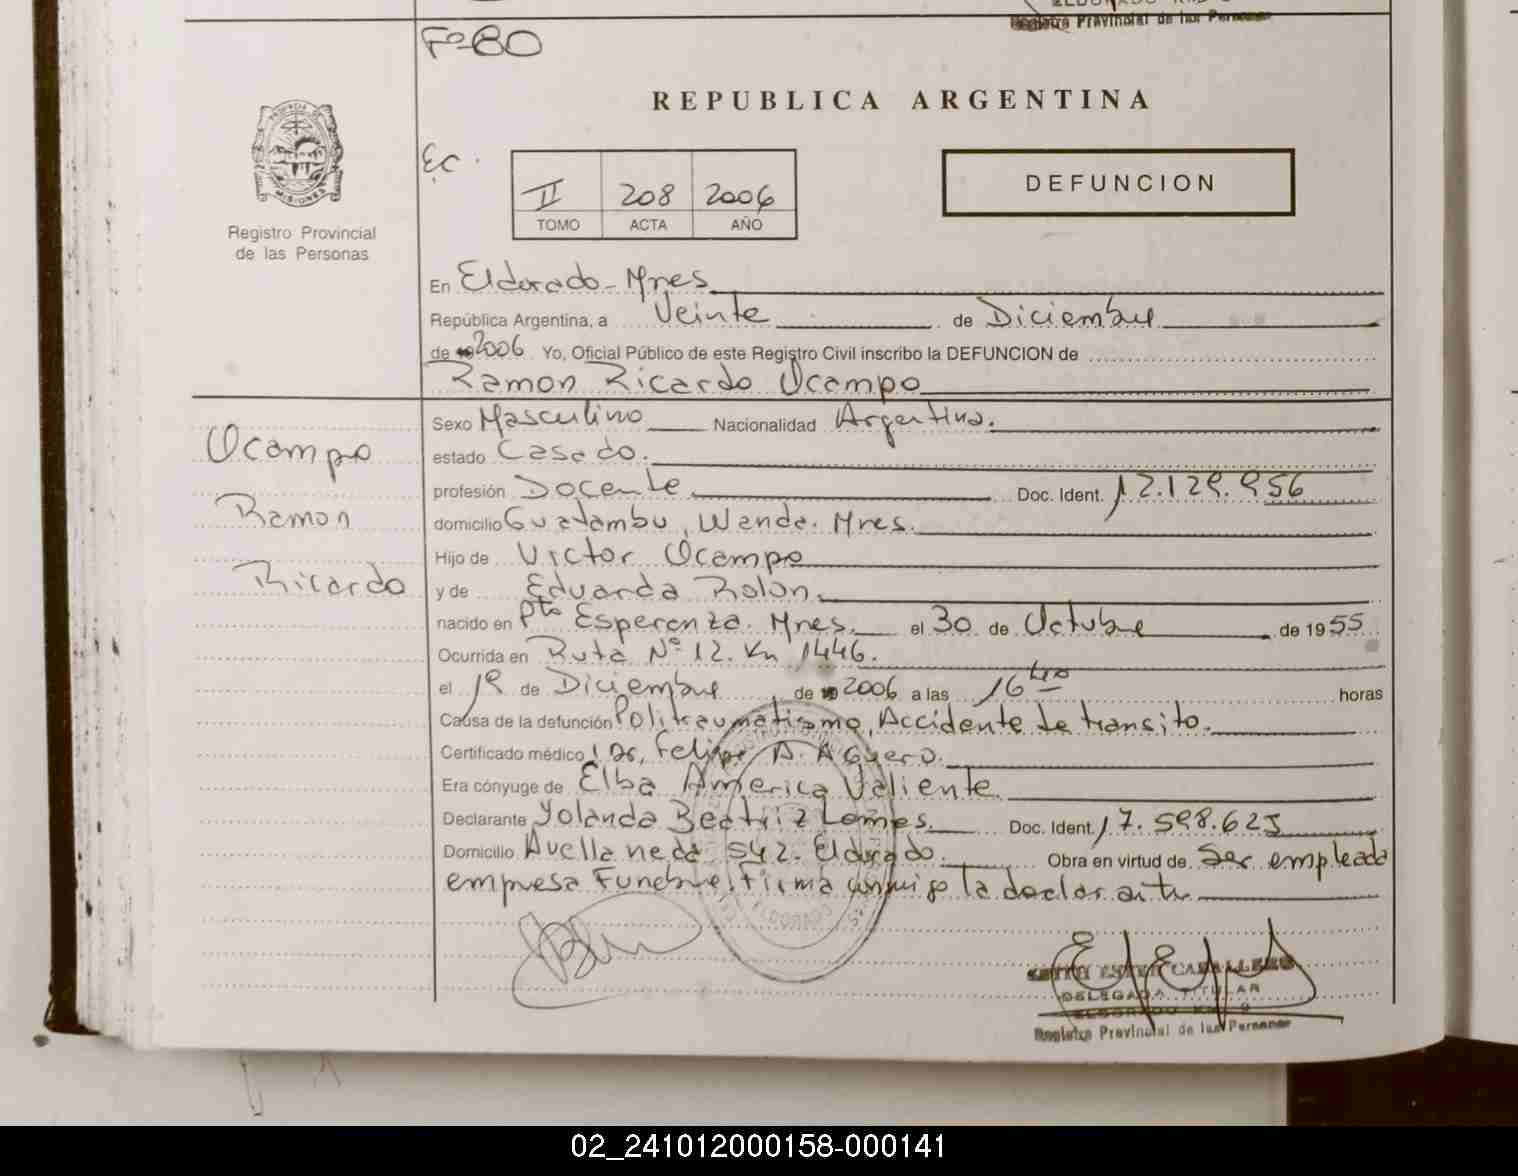 Registro Provincial de las Personas
Fº 80
REPUBLICA ARGENTINA
Ec.
II 208 2006
TOMO ACTA AÑO
DEFUNCION
PROVINCIA DE MISIONES
Registro Provincial
de las Personas
En Eldorado - Mnes
República Argentina, a Veinte de Diciembre
de 2006 Yo, Oficial Público de este Registro Civil inscribo la DEFUNCION de
Ramon Ricardo Ocampo
Ocampo
Ramon
Ricardo
Sexo Masculino Nacionalidad Argentina.
estado Casado.
profesión Docente Doc. Ident. 12.129.956
domicilio Guatambu, Wanda. Mnes.
Hijo de Victor Ocampo
y de Eduarda Rolon.
nacido en Pto Esperanza. Mnes. el 30 de Octubre de 1955
Ocurrida en Ruta Nº 12. Km 1446.
el 1º de Diciembre de 2006 a las 16 40 horas
Causa de la defunción Politraumatismo, Accidente de transito.
Certificado médico: Dr, Felipe A. Aguero.
Era cónyuge de Elba America Valiente
Declarante Yolanda Beatriz Lemes. Doc. Ident. 17.598.625
Domicilio Avellaneda 542. Eldorado. Obra en virtud de Ser empleada
empresa Funebre. Firma conmigo la declarante
ESTER CABALLERO
DELEGADA TITULAR
ELDORADO KM. 9
Registro Provincial de las Personas
02_241012000158-000141